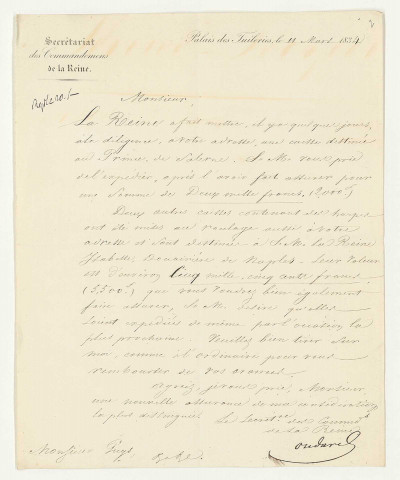 Secrétariat
des Commandemens
de la Reine.
Palais des Tuileries, le 11 Mars 1834
Monsieur,
La Reine a fait mettre, il y a quelques jours,
à la diligence, à votre adresse, une caisse destinée
au Prince de Salerne. S. M. vous prie
de l'expédier, après l'avoir fait assurer pour
une Somme de Deux mille francs (2,000f)
Deux autres caisses contenant des
ont été mises au roulage aussi à votre
adresse et sont destinées à S. M. la Reine
Isabelle, Douairière de Naples. Leur valeur
est d'environ Cinq mille, cinq cents francs
(5,500f) que vous voudrez bien également
faire assurer, S. M. désire qu'elles
soient expédiées de même par l'occasion la
plus prochaine. Veuillez bien tirer sur
moi, comme à l'ordinaire pour vous
rembourser de vos avances.
Agréez, je vous prie, Monsieur
une nouvelle assurance de ma considération
la plus distinguée.
Le Secrétre des Command
de la Reine
Oudard
Monsieur